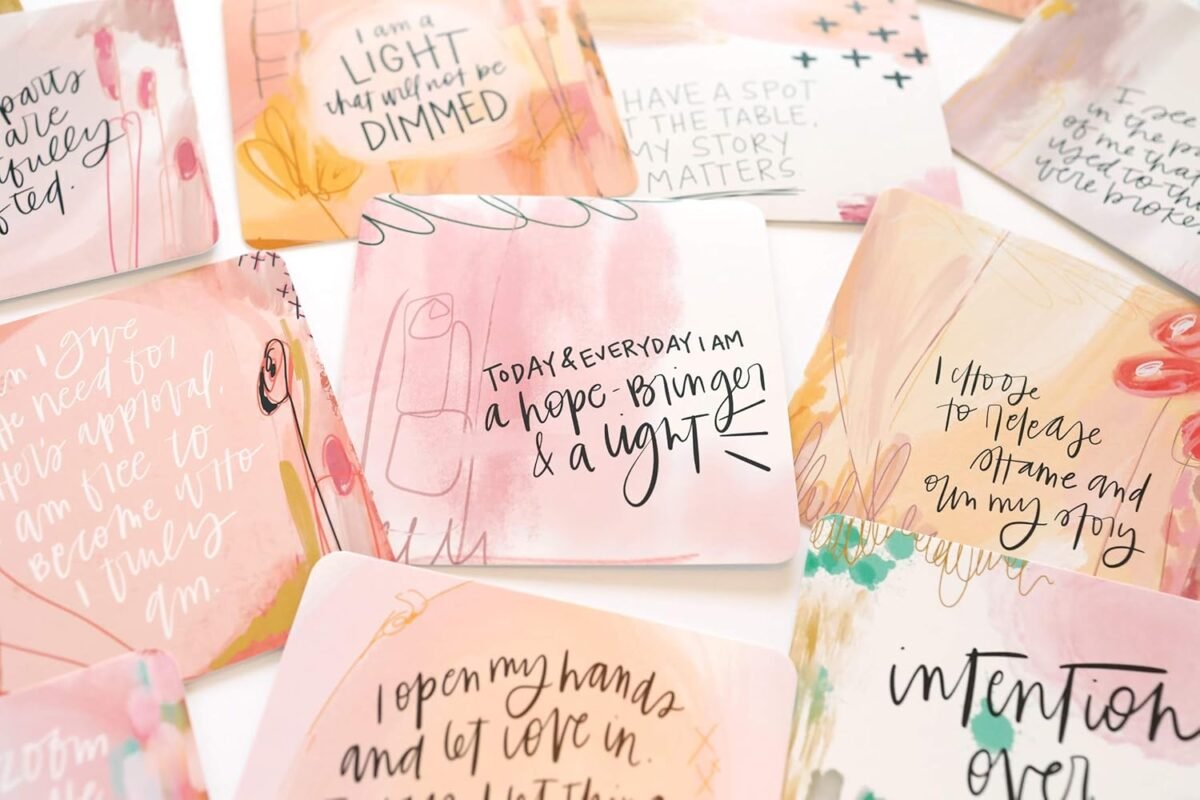 parts
are
I am a
LIGHT
that will not be
DIMMED
HAVE A SPOT
THE TABLE.
MY STORY
MATTERS
I see
in the
of me that
used to
were
I give
need for
approval.
am free to
Become who
I truly
am.
TODAY & EVERYDAY I AM
a hope-Bringer
& a light
I choose
to release
shame and
own my story
I open my hands
and let love in.
intention
over